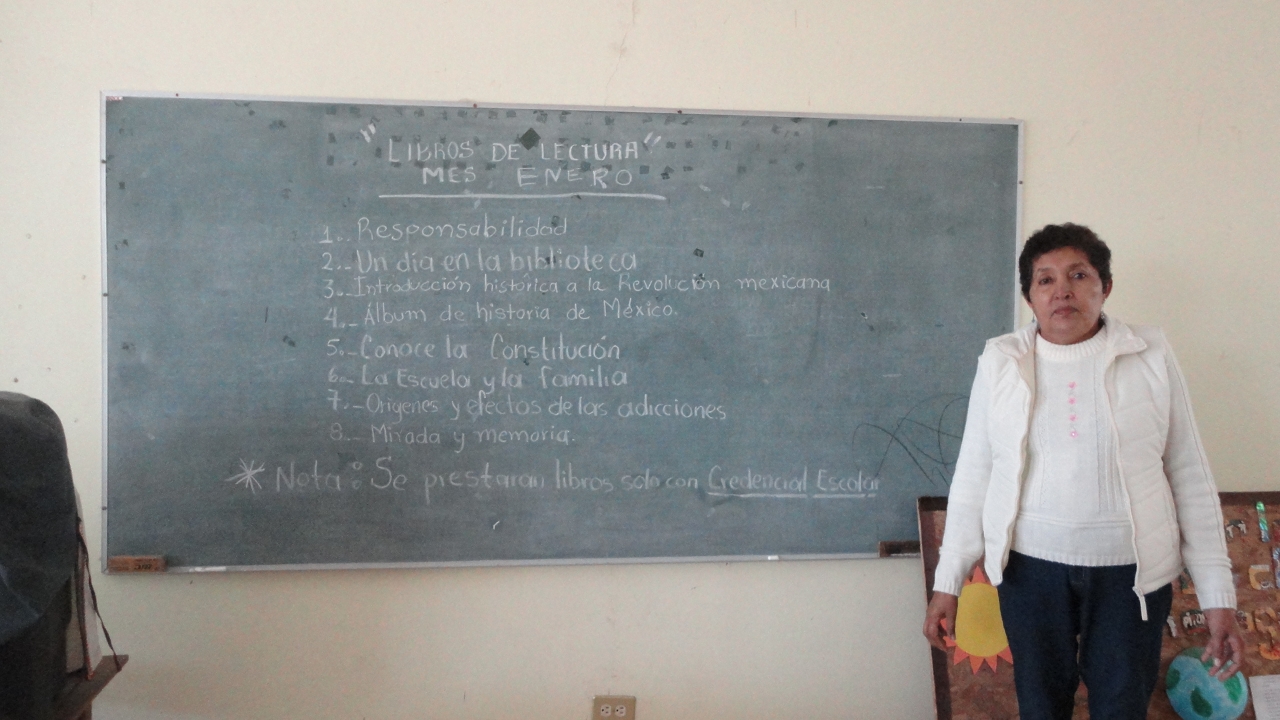 "LIBROS DE LECTURA"
MES ENERO
1.. Responsabilidad
2.- Un día en la biblioteca
3.- Introducción histórica a la Revolución mexicana
4.- Álbum de historia de México.
5.- Conoce la Constitución
6.- La Escuela y la familia
7.- Origenes y efectos de las adicciones
8.- Mirada y memoria.
* Nota: Se prestaran libros solo con Credencial Escolar